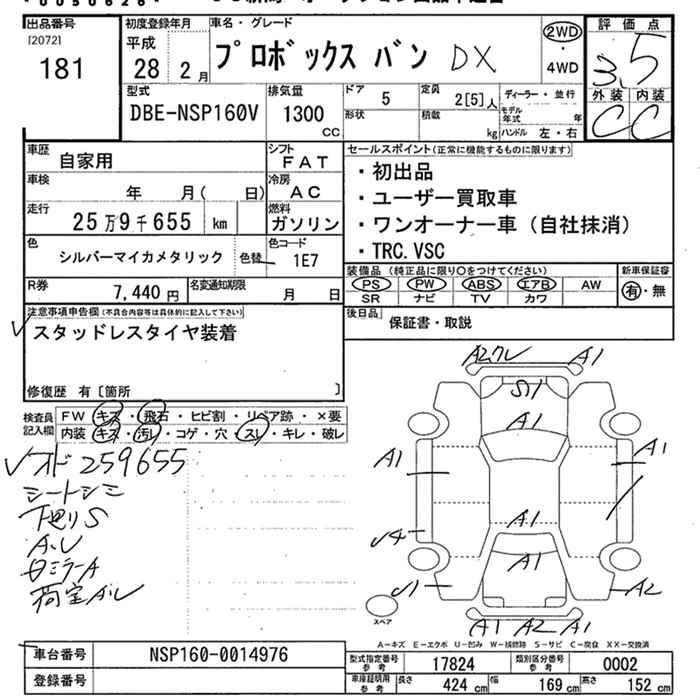 出品番号
[2072]
181
初度登録年月
平成
28 2月
車名・グレード
プロボックス バン DX
2WD
4WD
評価点
3.5
外装 内装
C C
型式
DBE-NSP160V
排気量
1300
CC
ドア
5
形状
定員
2[5]人
積載
kg
ディーラー・並行
モデル
年式 年
ハンドル 左・右
車歴
自家用
シフト
FAT
車検
年 月( 日)
冷房
AC
走行
25万9千655 km
燃料
ガソリン
色
シルバーマイカメタリック
色替
色コード
1E7
R券
7,440円
名変通知期限
月 日
セールスポイント(正常に機能するものに限ります)
・初出品
・ユーザー買取車
・ワンオーナー車(自社抹消)
・TRC.VSC
装備品(純正品に限り○をつけてください)
PS PW ABS エアB AW
SR ナビ TV カワ
新車保証書
有・無
後日品
保証書・取説
注意事項申告欄(不具合内容等は具体的に記入して下さい)
スタッドレスタイヤ装着
修復歴 有〔箇所 〕
検査員
記入欄
FW キズ・飛石・ヒビ割・リペア跡・×要
内装 キズ・汚レ・コゲ・穴・スレ・キレ・破レ
オド259655
シートシミ
下廻りS
A.U
荷室A.U
A1
S1
A1
A1
A1
A1
A1
A2
A1 A2 A1
スペア
A-キズ E-エクボ U-凹み W-補修跡 S-サビ C-腐食 XX-交換済
車台番号
NSP160-0014976
登録番号
型式指定番号
参考
17824
類別区分番号
参考
0002
車庫証明用
参考
長さ
424 cm
幅
169 cm
高さ
152 cm